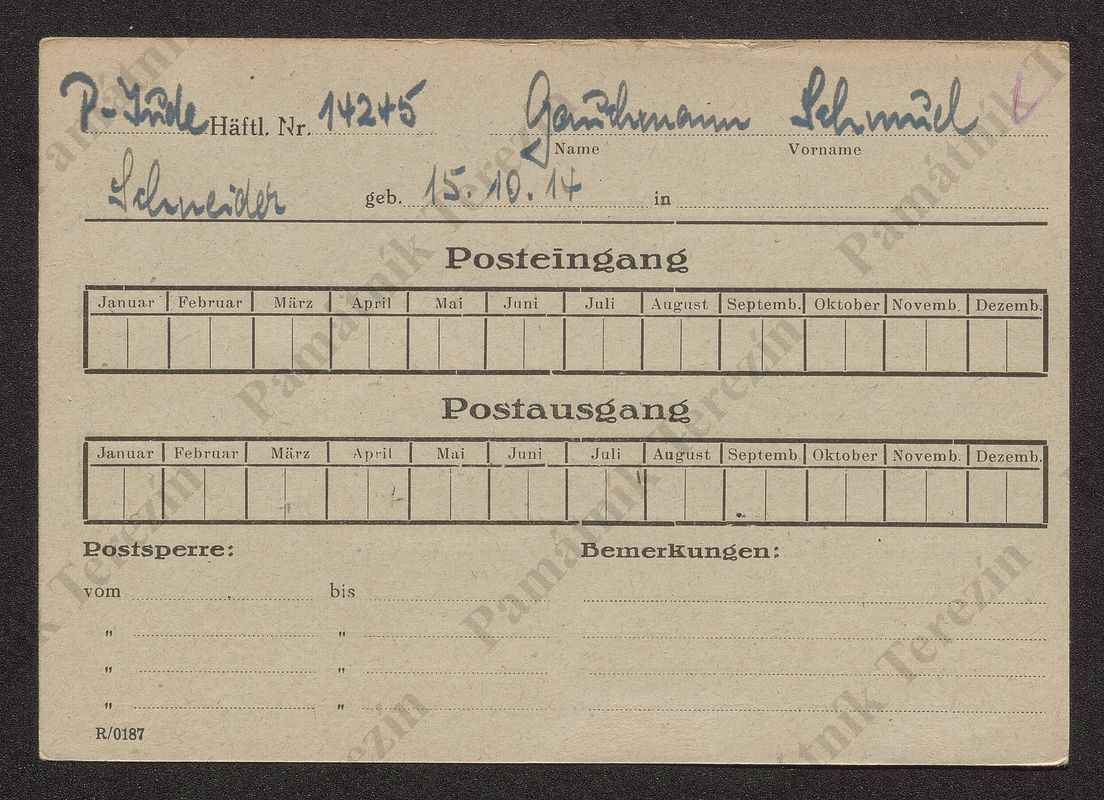 P-Jude Häftl. Nr. 14245 Gauchmann Schmuel
Name Vorname
Schneider geb. 15. 10. 14 in
Posteingang
Januar Februar März April Mai Juni Juli August Septemb. Oktober Novemb. Dezemb.
Postausgang
Januar Februar März April Mai Juni Juli August Septemb. Oktober Novemb. Dezemb.
Postsperre: Bemerkungen:
vom bis
" "
" "
" "
R/0187
Památník Terezín